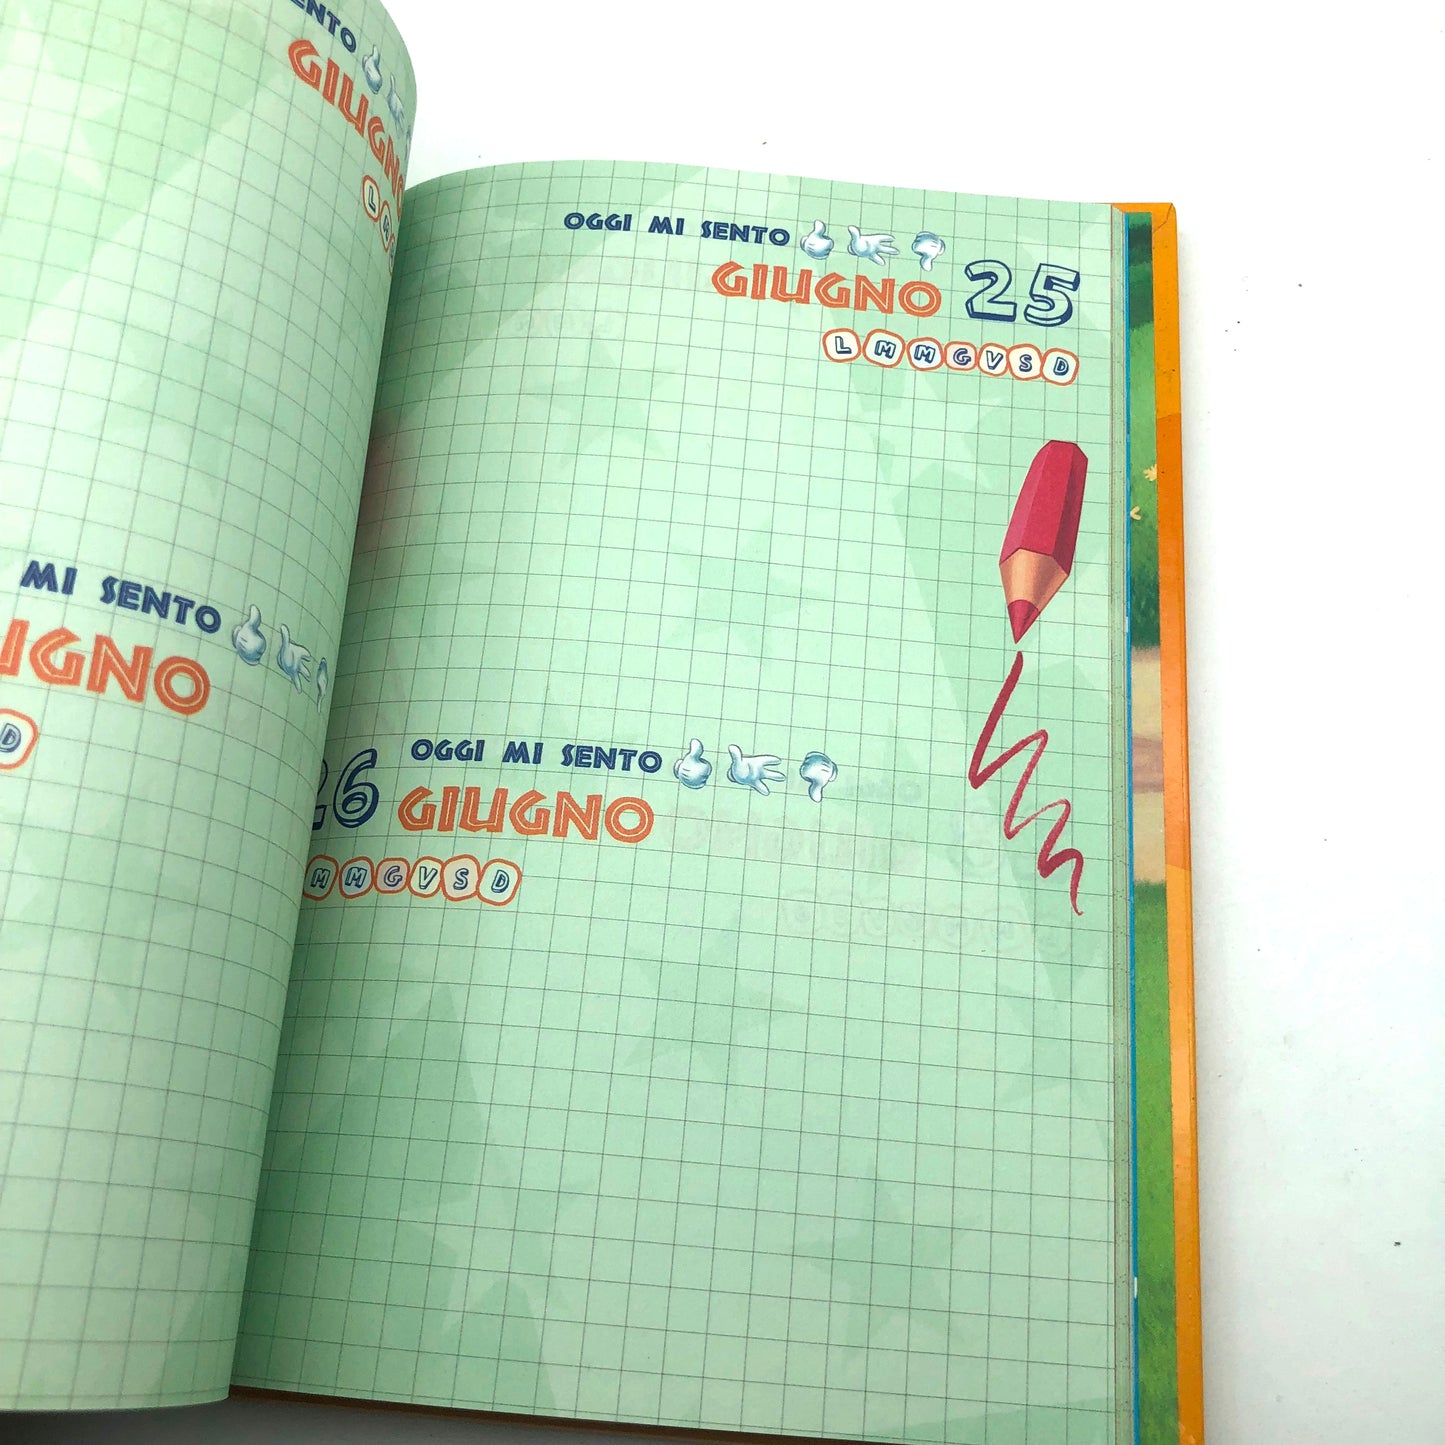 GIUGNO
MI SENTO
D
OGGI MI SENTO
GIUGNO 25
L M M G V S D
26 OGGI MI SENTO
GIUGNO
M M G V S D